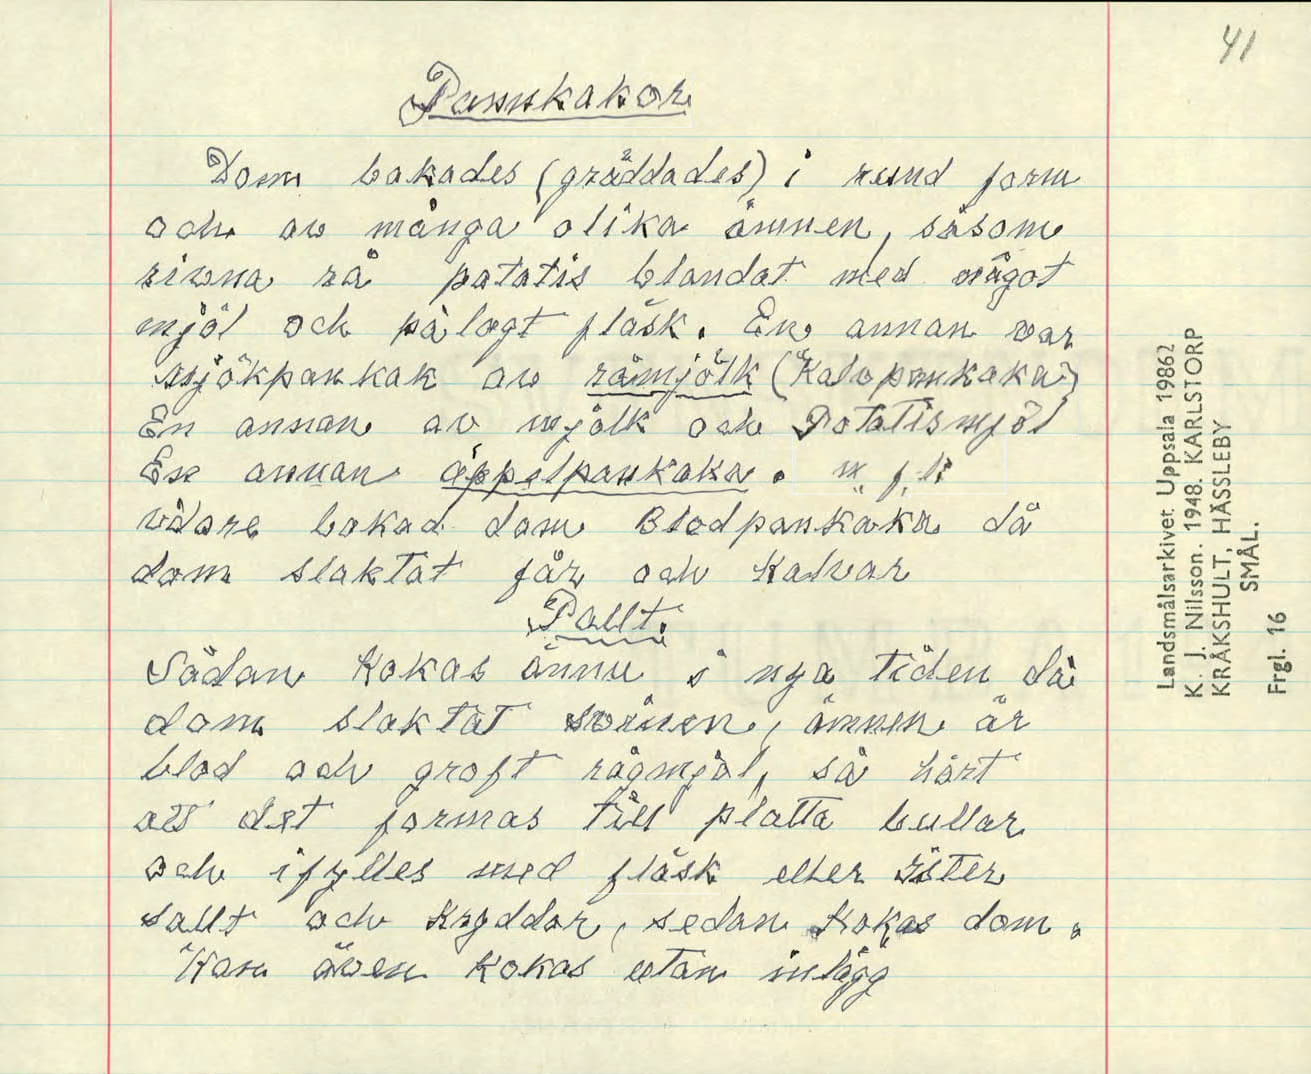 41
Pannkakor
Dom bakades (gräddades) i rund form
och av många olika ämnen, såsom
rivna rå patatis blandat med något
mjöl och på lagt fläsk. En annan var
mjökpankak av råmjölk (Kalvpankaka)
En annan av mjölk och Potatismjöl
En annan äppelpankaka. m, fl,
vidare bakad dom Blodpankaka då
dom slaktat får och Kalvar
Pallt.
Sådan Kokas ännu i nya tiden då
dom slaktat svinen, ämnen är
blod och groft rågmjöl, så hårt
att det formas till platta bullar
och ifylles med fläsk eller ister
sallt och Kryddor, sedan Kokas dom.
Kan även Kokas utan inlägg
Landsmålsarkivet Uppsala 19862
K. J. Nilsson. 1948. KARLSTORP
KRÅKSHULT, HÄSSLEBY
SMÅL.
Frgl. 16